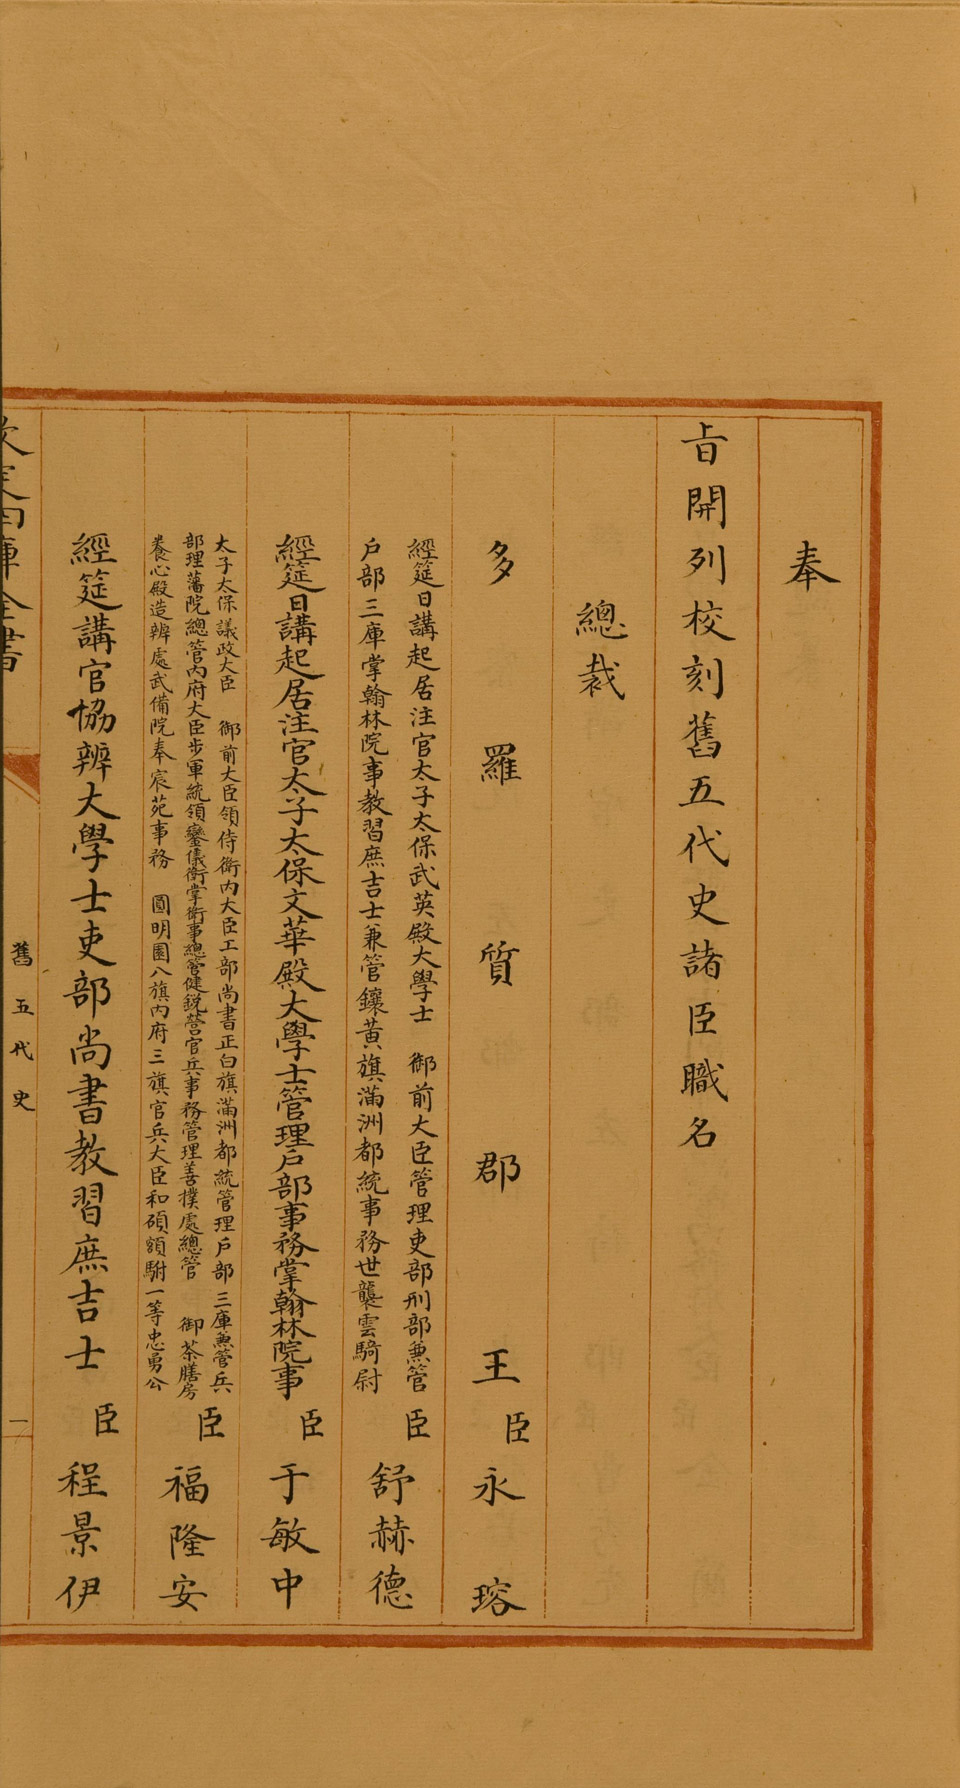 奉
旨開列校刻舊五代史諸臣職名
總裁
多羅質郡王臣永瑢
經筵日講起居注官太子太保武英殿大學士 御前大臣管理吏部刑部兼管
戶部三庫掌翰林院事教習庶吉士兼管鑲黃旗滿洲都統事務世襲雲騎尉臣舒赫德
經筵日講起居注官太子太保文華殿大學士管理戶部事務掌翰林院事臣于敏中
太子太保議政大臣 御前大臣領侍衛內大臣工部尚書正白旗滿洲都統管理戶部三庫兼管兵
部理藩院總管內府大臣步軍統領鑾儀衛掌衛事總管健銳營官兵事務管理善撲處總管 御茶膳房
養心殿造辦處武備院奉宸苑事務 圓明園八旗內府三旗官兵大臣和碩額駙一等忠勇公臣福隆安
經筵講官協辦大學士吏部尚書教習庶吉士臣程景伊
欽定四庫全書
舊五代史
一